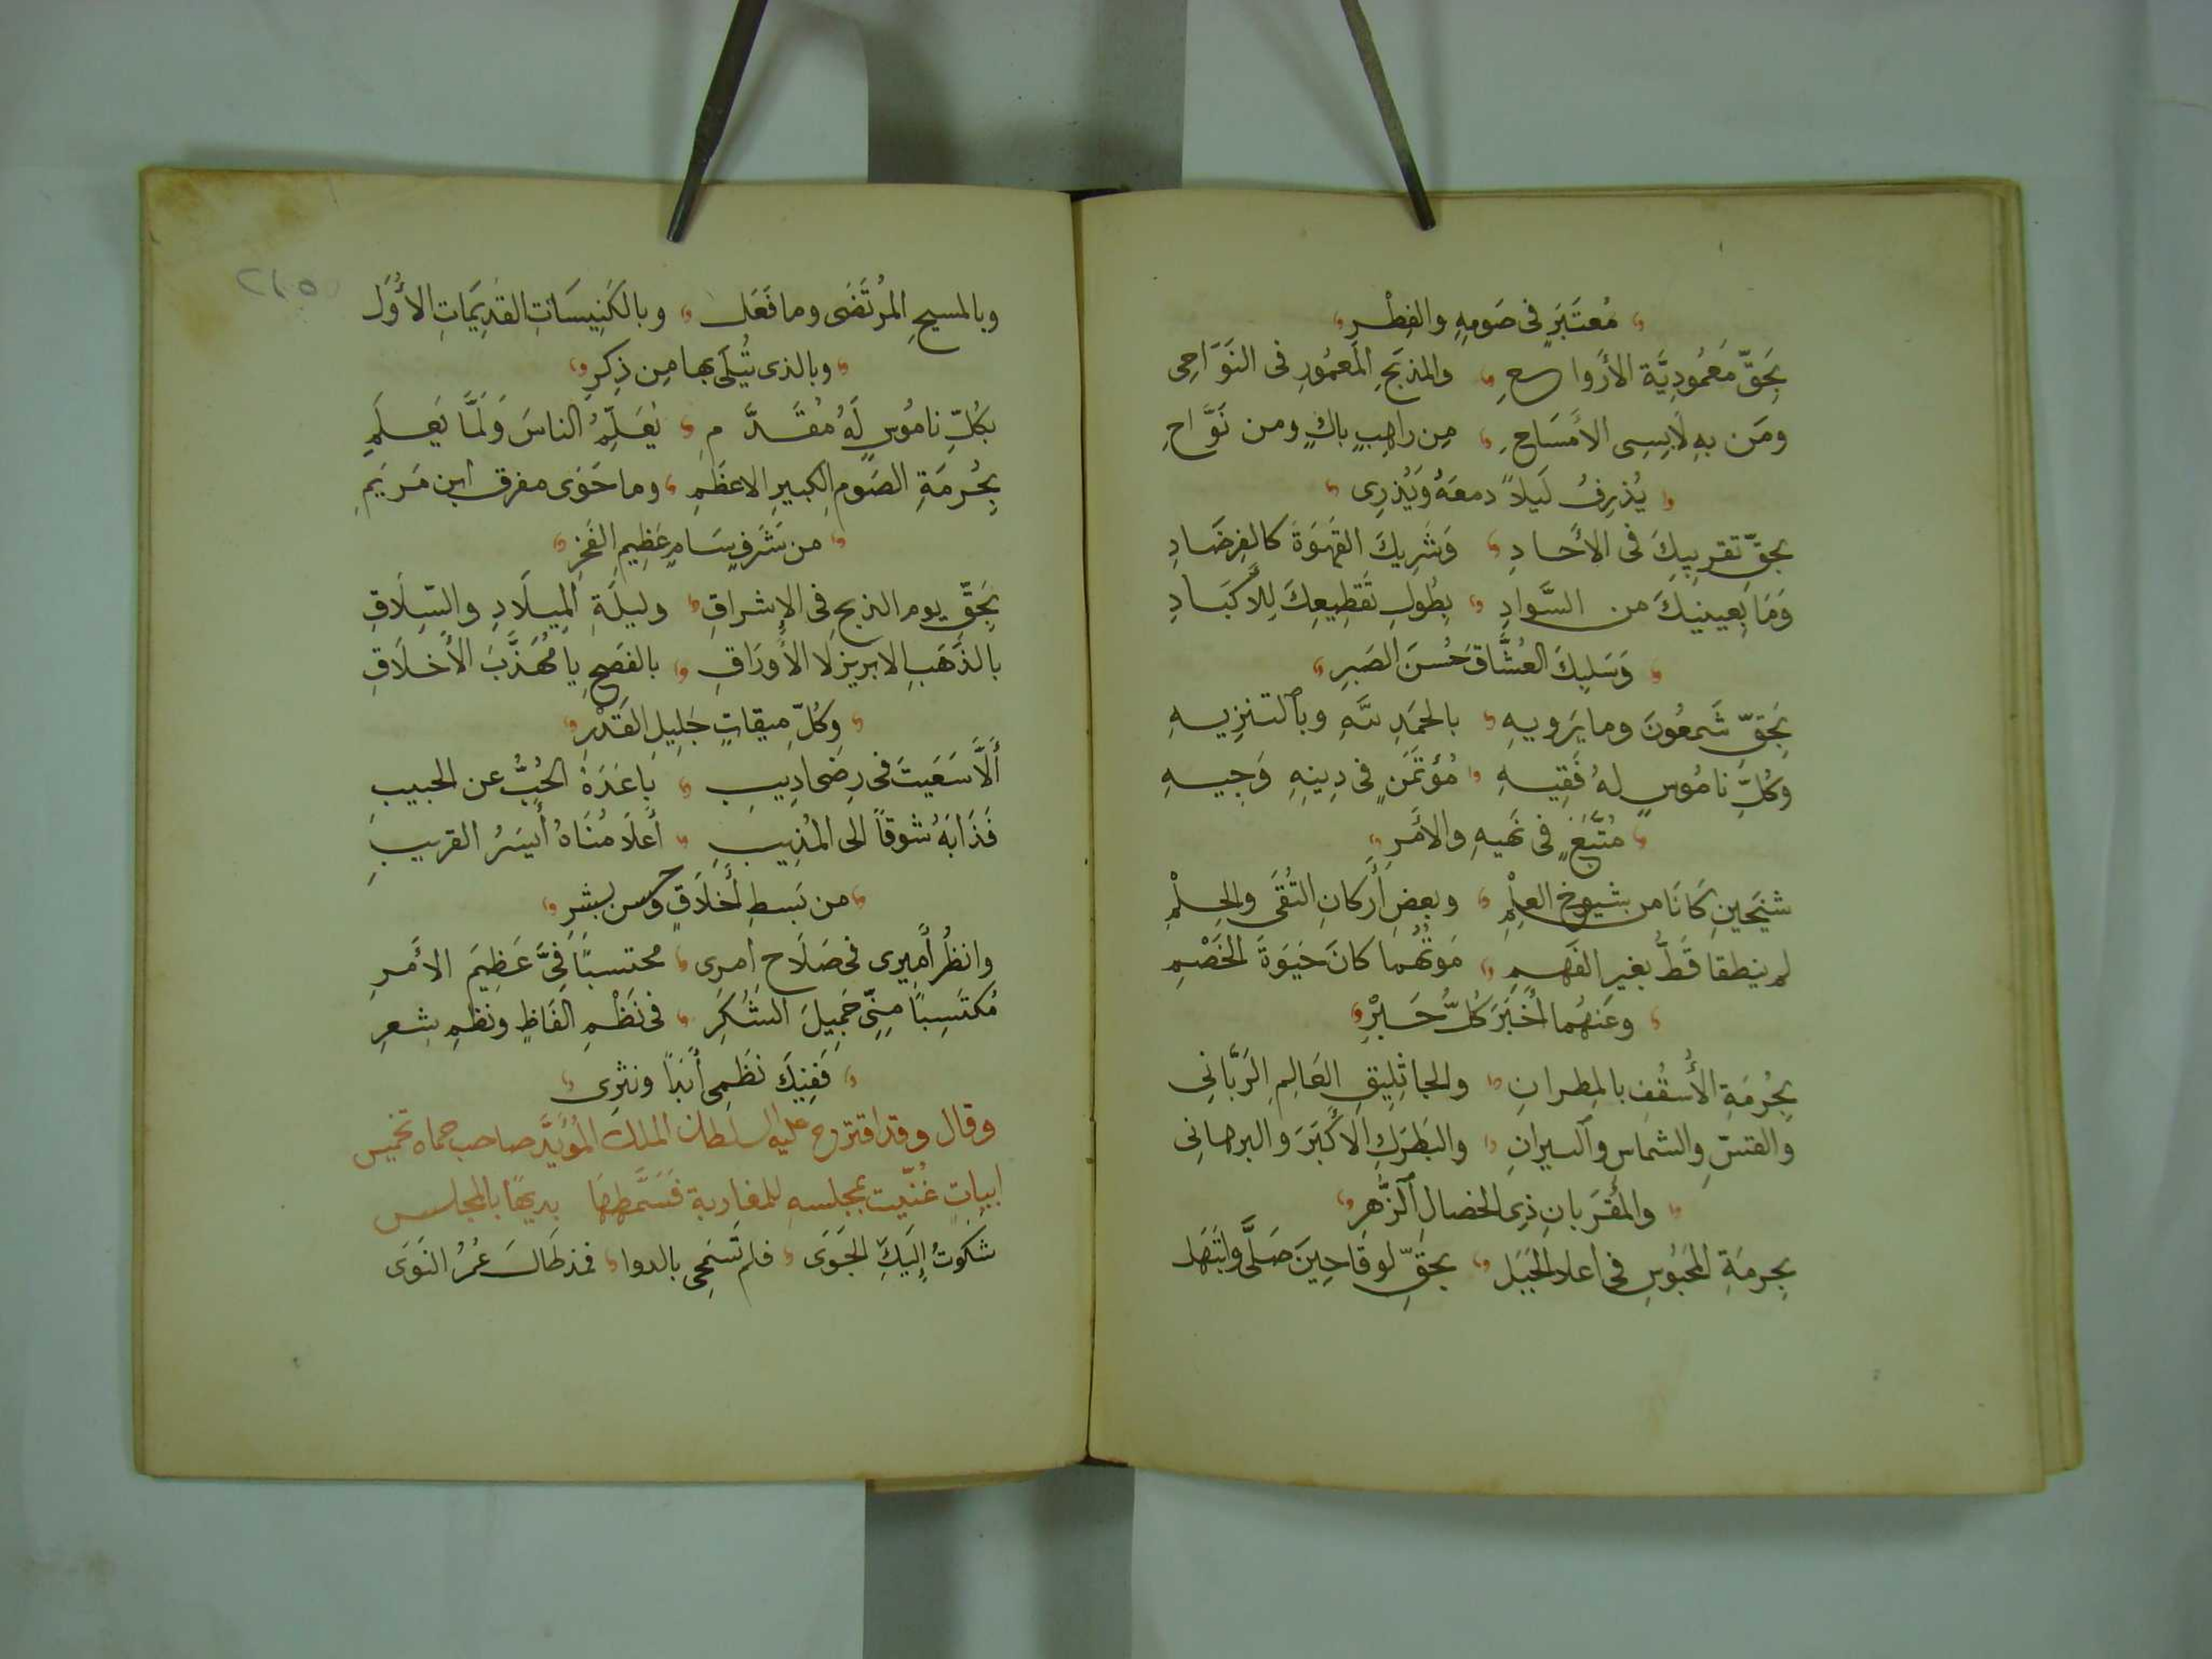 مُعتَبَرٍ فى صَومِهِ والفِطْرِ
بحَقِّ مَعمُودِيَّة الأَرواحِ والمذبَحِ المَعمُورِ فى النَوَاحِى
ومَن بهِ لَابِسِى الأَمسَاحِ مِن راهِبٍ باكٍ ومن نَوَّاحِ
يُذرِفُ لَيلاً دمعَهُ وَيُذرِى
بحقِّ تقريبِكَ فى الأَحادِ وَشُربِكَ القَهوَةَ كالفِرصَادِ
وَمَا بِعينيكَ من السَّوادِ بِطُولِ تَقطِيعِكَ لِلأَكبَادِ
وَسَلبِكَ العُشَّاقَ حُسنَ الصَبرِ
بحَقِّ شَمعُونَ وما يَرويهِ بالحمَدِ للهِ وبالتنزِيهِ
وكُلِّ نامُوسٍ لهُ فَقِيهِ مُؤتَمَنٍ فى دِينِهِ وَجِيهِ
مُتَّبَعٍ فى نَهيهِ والأَمَرِ
شيخَينِ كَانَا من شيوخِ العِلْمِ وبعضِ أَركانِ التُقَى والحِلْمِ
لم ينطقا قَطُّ بغير الفَهمِ مَوتُهُما كانَ حَيَوةَ الخَصْمِ
وعَنهُما أَخبَرَ كُلُّ حَبْرِ
بِحُرمَةِ الأُسقُفِ بالمِطرانِ والجاثلِيقِ العَالِمِ الرَبَّانِى
والقسِّ والشماسِ والديرانِ والبَطرَكِ الأَكبَرَ والبرهانى
والمُقرَبانِ ذِى الخصالِ الزُّهرِ
بِحرمَةِ المَحبُوسِ فى أعلا الجَبَل بحَقِّ لوقَا حِينَ صَلَّى وابتَهَل
وبالمسيحِ المُرتَضَى وما فَعَل وبالكَنِيسَاتِ القَدِيمَاتِ الأُوَل
وبالذى يُتلَى بها مِن ذِكرِ
بكُلِّ نامُوسٍ لَهُ مُقَدَّمِ يُعَلِّمُ الناسَ وَلَمَّا يَعلَمِ
بِحُرمَةِ الصَومِ الكبيرِ الاعظَمِ وما حَوَى مفرق ابن مَريَمِ
من شَرَفٍ سَامٍ عَظِيمِ الفَخرِ
بحَقِّ يوم الذبحِ فى الإِشراقِ وليلَةِ المِيلَادِ والسِّلَاقِ
بالذَهَبِ الابريزِ لا الأَورَاقِ بالفصحِ يا مُهَذَّبَ الأَخلَاقِ
وَكُلّ مِيقاتٍ جَلِيلِ القَدْرِ
أَلَّا سَعَيتَ فى رِضى ادِيبِ بَاعَدَهُ الحُبُّ عن الحبيبِ
فَذَابَهُ شوقاً الى المُذِيبِ أَعلَا مُنَاهُ أَيسَرُ القريبِ
من بَسطِ أَخلَاقٍ وحسن بِشرِ
وانظُر أَمِيرى فى صَلَاح امرى محتسبًا فِىَّ عَظِيمَ الأَمرِ
مُكتَسِبًا مِنِّى جَمِيلَ الشُكرِ فى نَظْمِ الفَاظٍ ونظمِ شعرِ
فَفِيكَ نَظمِى أَبَدًا ونثرِى
وقال وقد اقترح عليه السلطان الملك المُؤيَّد صاحب حماه تخميس
ابيات غُنّيت بمجلسه للمغاربة فَسَمَّطهَا بديهًا بالمجلس
شكَوتُ إِلَيكَ الجَوَى فلم تَسمحى بالدوا فمذ طَالَ عُمرُ النَوَى